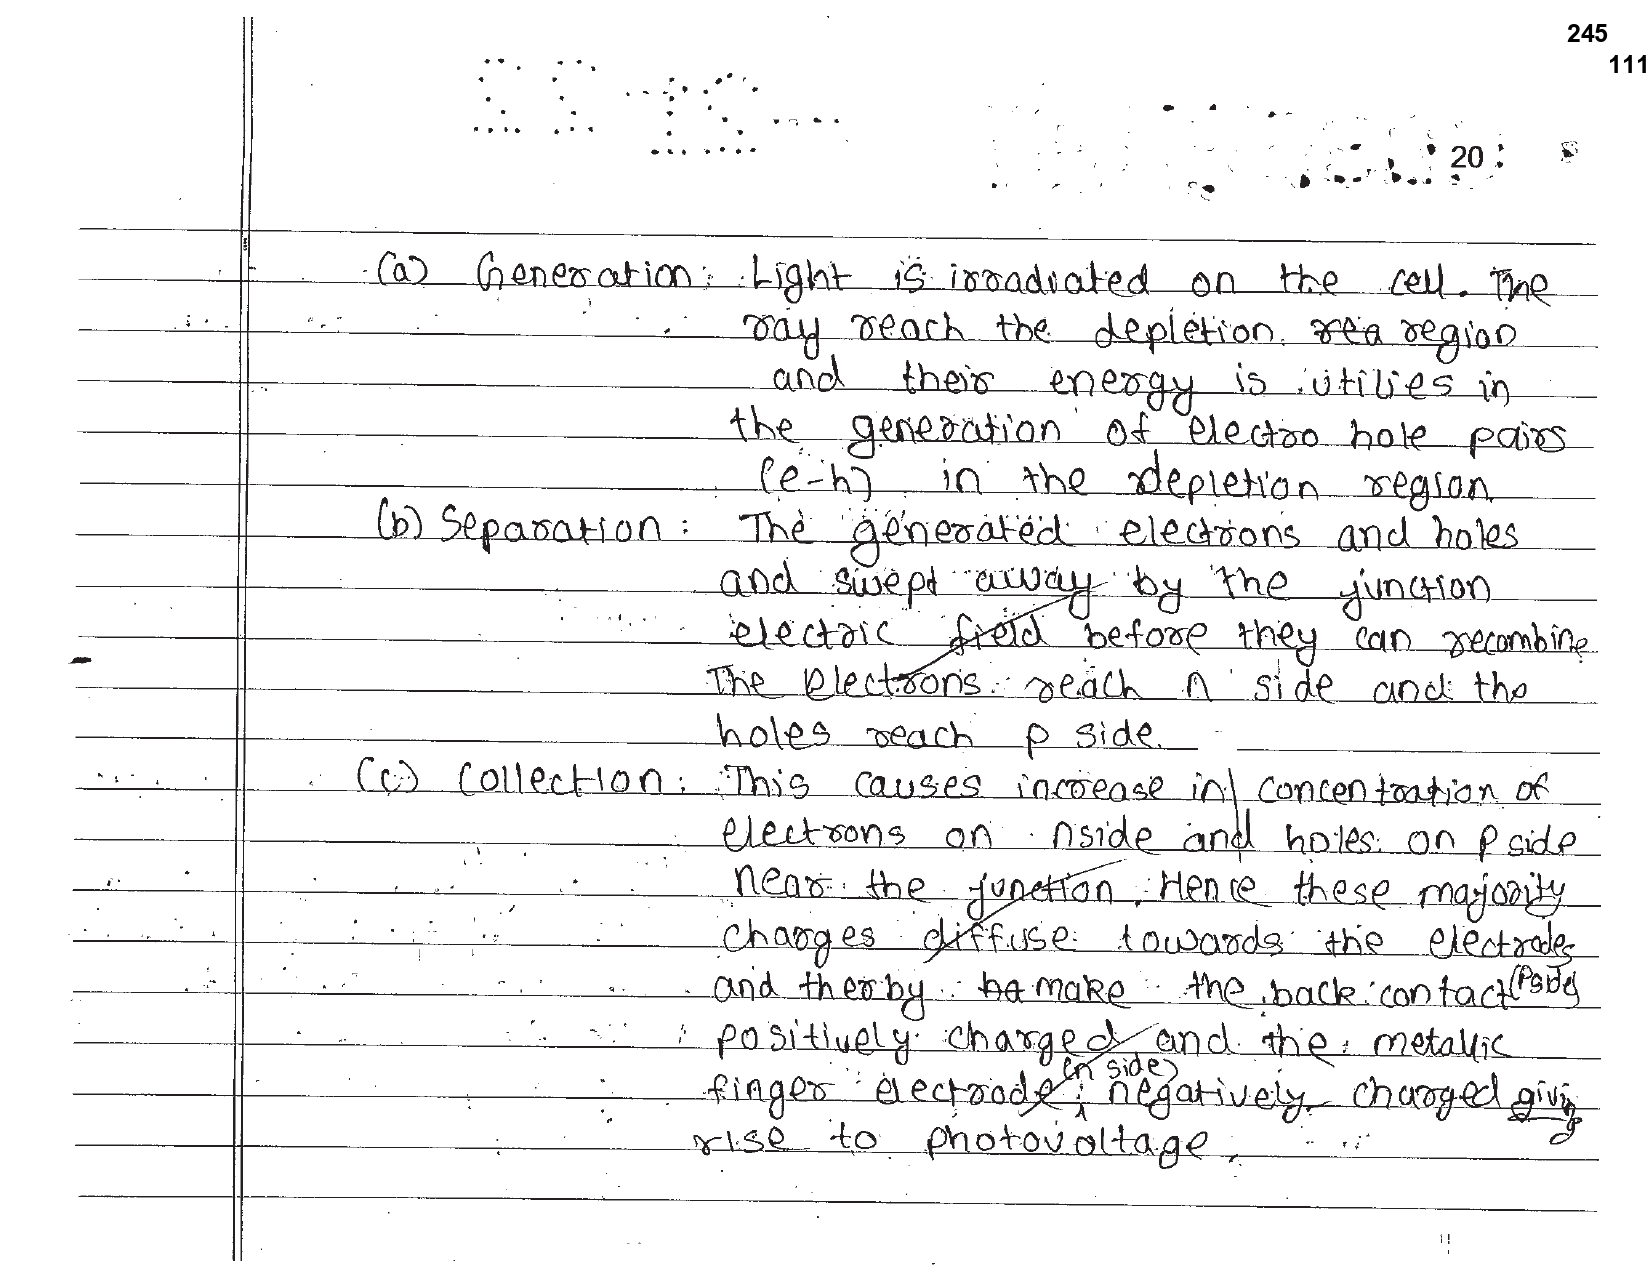 245
111
20
(a) Generation: Light is irradiated on the cell. The
ray reach the depletion rea region
and their energy is utilies in
the generation of electro hole pairs
(e-h) in the depletion region
(b) Separation: The generated electrons and holes
and swept away by the junction
electric field before they can recombine
The electrons reach n side and the
holes reach p side.
(c) Collection: This causes increase in concentration of
electrons on nside and holes on P side
near the junction. Hence these majority
charges diffuse towards the electrodes
and therby make the back contact (Pside)
positively charged and the metallic
finger electrode (n side) negatively charged giving
rise to photovoltage.